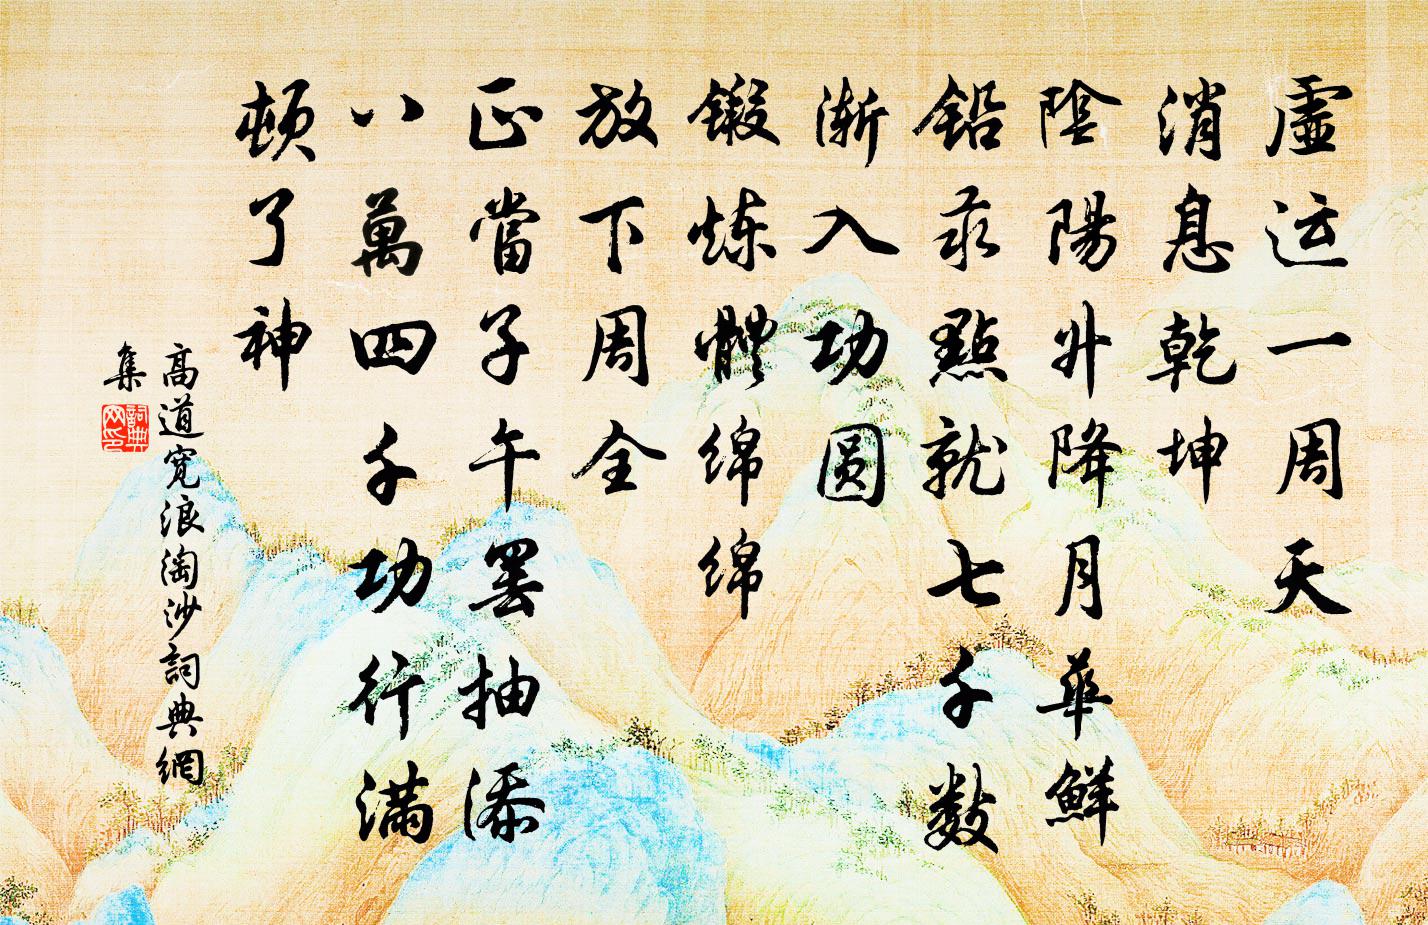 虛运一周天
消息乾坤
陰陽升降月華鮮
鉛汞點就七千數
渐入功圆
鍛炼體绵绵
放下周全
正當子午罢抽添
八萬四千功行满
顿了神
高道宽浪淘沙詞典網
集
詞典
网印